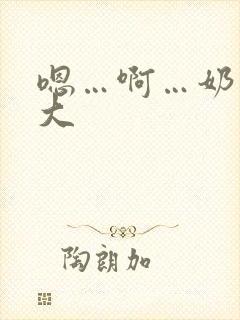 嗯…啊…奶
大
陶朗加